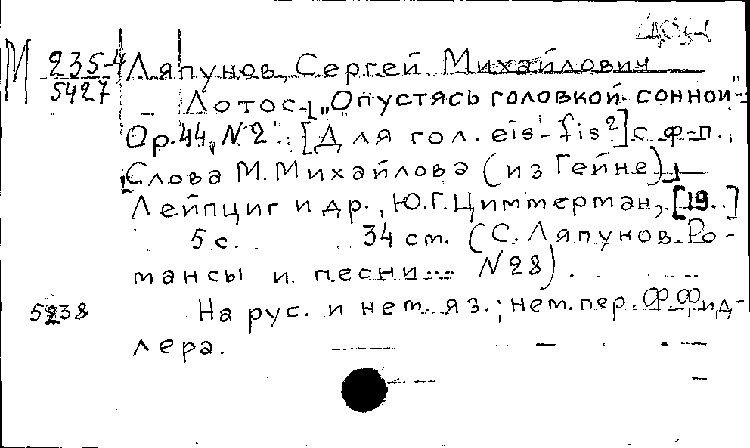 М 235-4 Ляпунов, Сергей Михайлович
5427
Лотос. „Опустясь головкой сонной"
Ор. 44, N 2. [Для гол. eis¹-fis²] с ф-п.,
Слова М. Михайлова (из Гейне)
Лейпциг и др., Ю.Г. Циммерман, [19..]
5 с. 34 см. (С. Ляпунов. Ро-
мансы и песни... N 28).
5238 На рус. и нем. яз.; нем. пер. Ф. Фид-
лера.